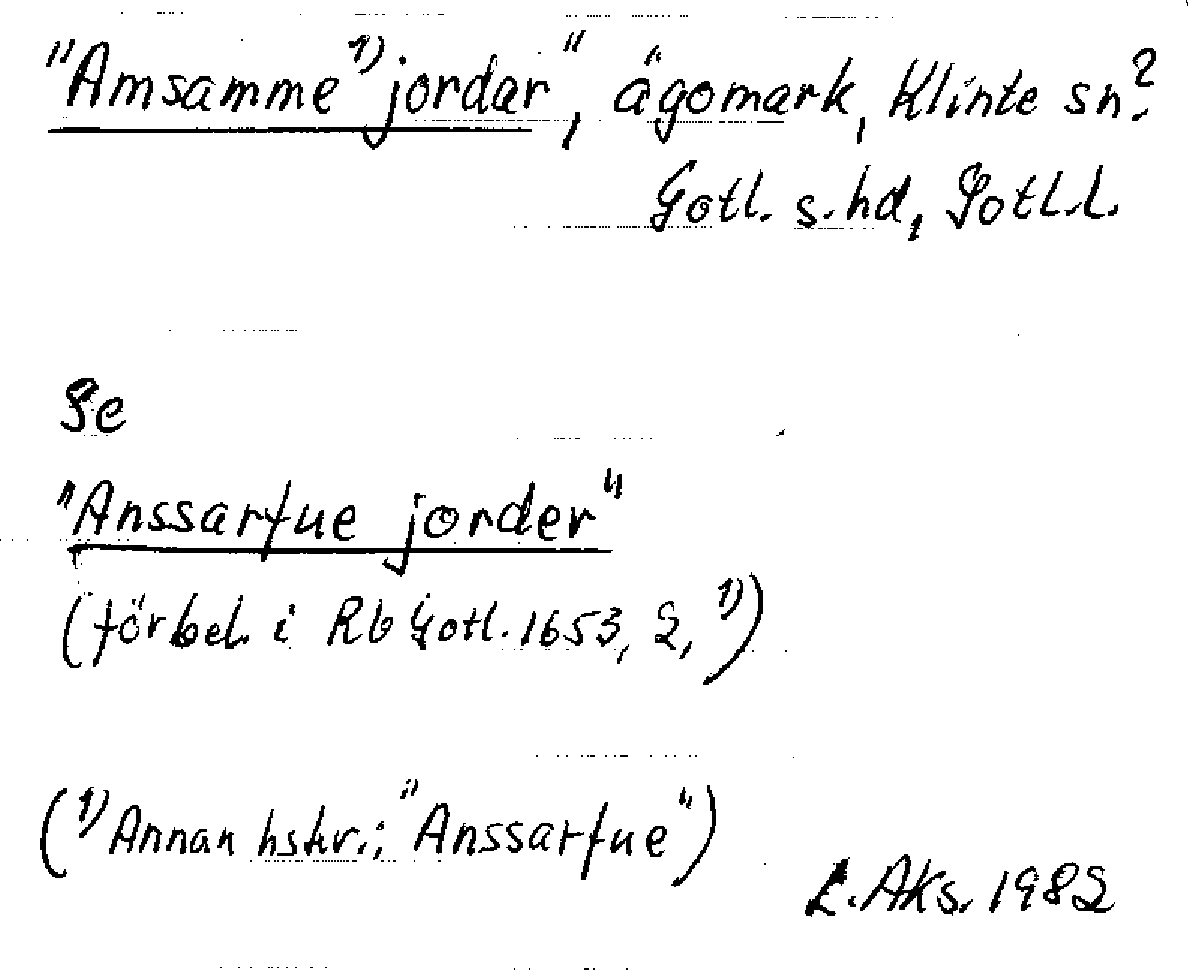 "Amsamme¹⁾ jordar", ägomark, Klinte sn?
Gotl. s. hd, Gotl.l.
Se
"Anssarfue jorder"
(förbel. i Rb Gotl. 1653, 2, ¹⁾)
(¹⁾ Annan hskr.; "Anssarfue")
L. Aks. 1982